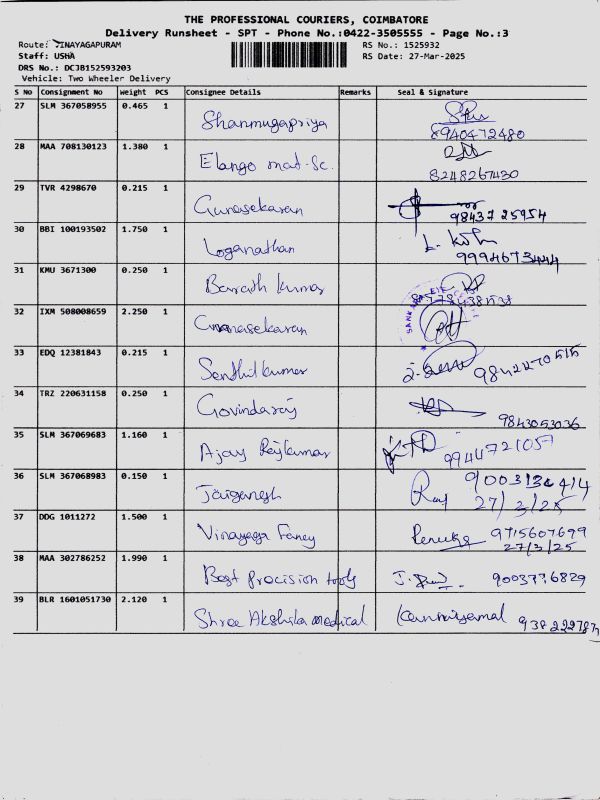 THE PROFESSIONAL COURIERS, COIMBATORE
Delivery Runsheet - SPT - Phone No.:0422-3505555 - Page No.:3
Route: VINAYAGAPURAM
RS No.: 1525932
Staff: USHA
RS Date: 27-Mar-2025
DRS No.: DCJB152593203
Vehicle: Two Wheeler Delivery
S No Consignment No Weight PCS Consignee Details Remarks Seal & Signature
27 SLM 367058955 0.465 1 Shanmugapriya
8940472480
28 MAA 708130123 1.380 1 Elango mat-Sc.
8248267430
29 TVR 4298670 0.215 1 Gunasekaran
98437 25954
30 BBI 100193502 1.750 1 Loganathan
9994673444
31 KMU 3671300 0.250 1 Barath kumar
32 IXM 508008659 2.250 1 Gunasekaran
SANKARA EYE
33 EDQ 12381843 0.215 1 Senthilkumar
9842270515
34 TRZ 220631158 0.250 1 Govindaraj
9843053036
35 SLM 367069683 1.160 1 Ajay Rajkumar
9944721057
36 SLM 367068983 0.150 1 Jaiganesh
Raj
27/3/25
37 DDG 1011272 1.500 1 Vinayaga Fancy
Renuka 9715607699
27/3/25
38 MAA 302786252 1.990 1 Best precision tools
9003776829
39 BLR 1601051730 2.120 1 Shree Akshila medical
Kanniyamal